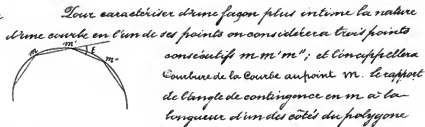 Pour caractériser d'une façon plus intime la nature
d'une courbe en l'un de ses points on considérera trois points
consécutifs m m' m"; et l'on appellera
Courbure de la Courbe au point m. le rapport
de l'angle de contingence en m à la
longueur d'un des côtés du polygone
m m' ε m"